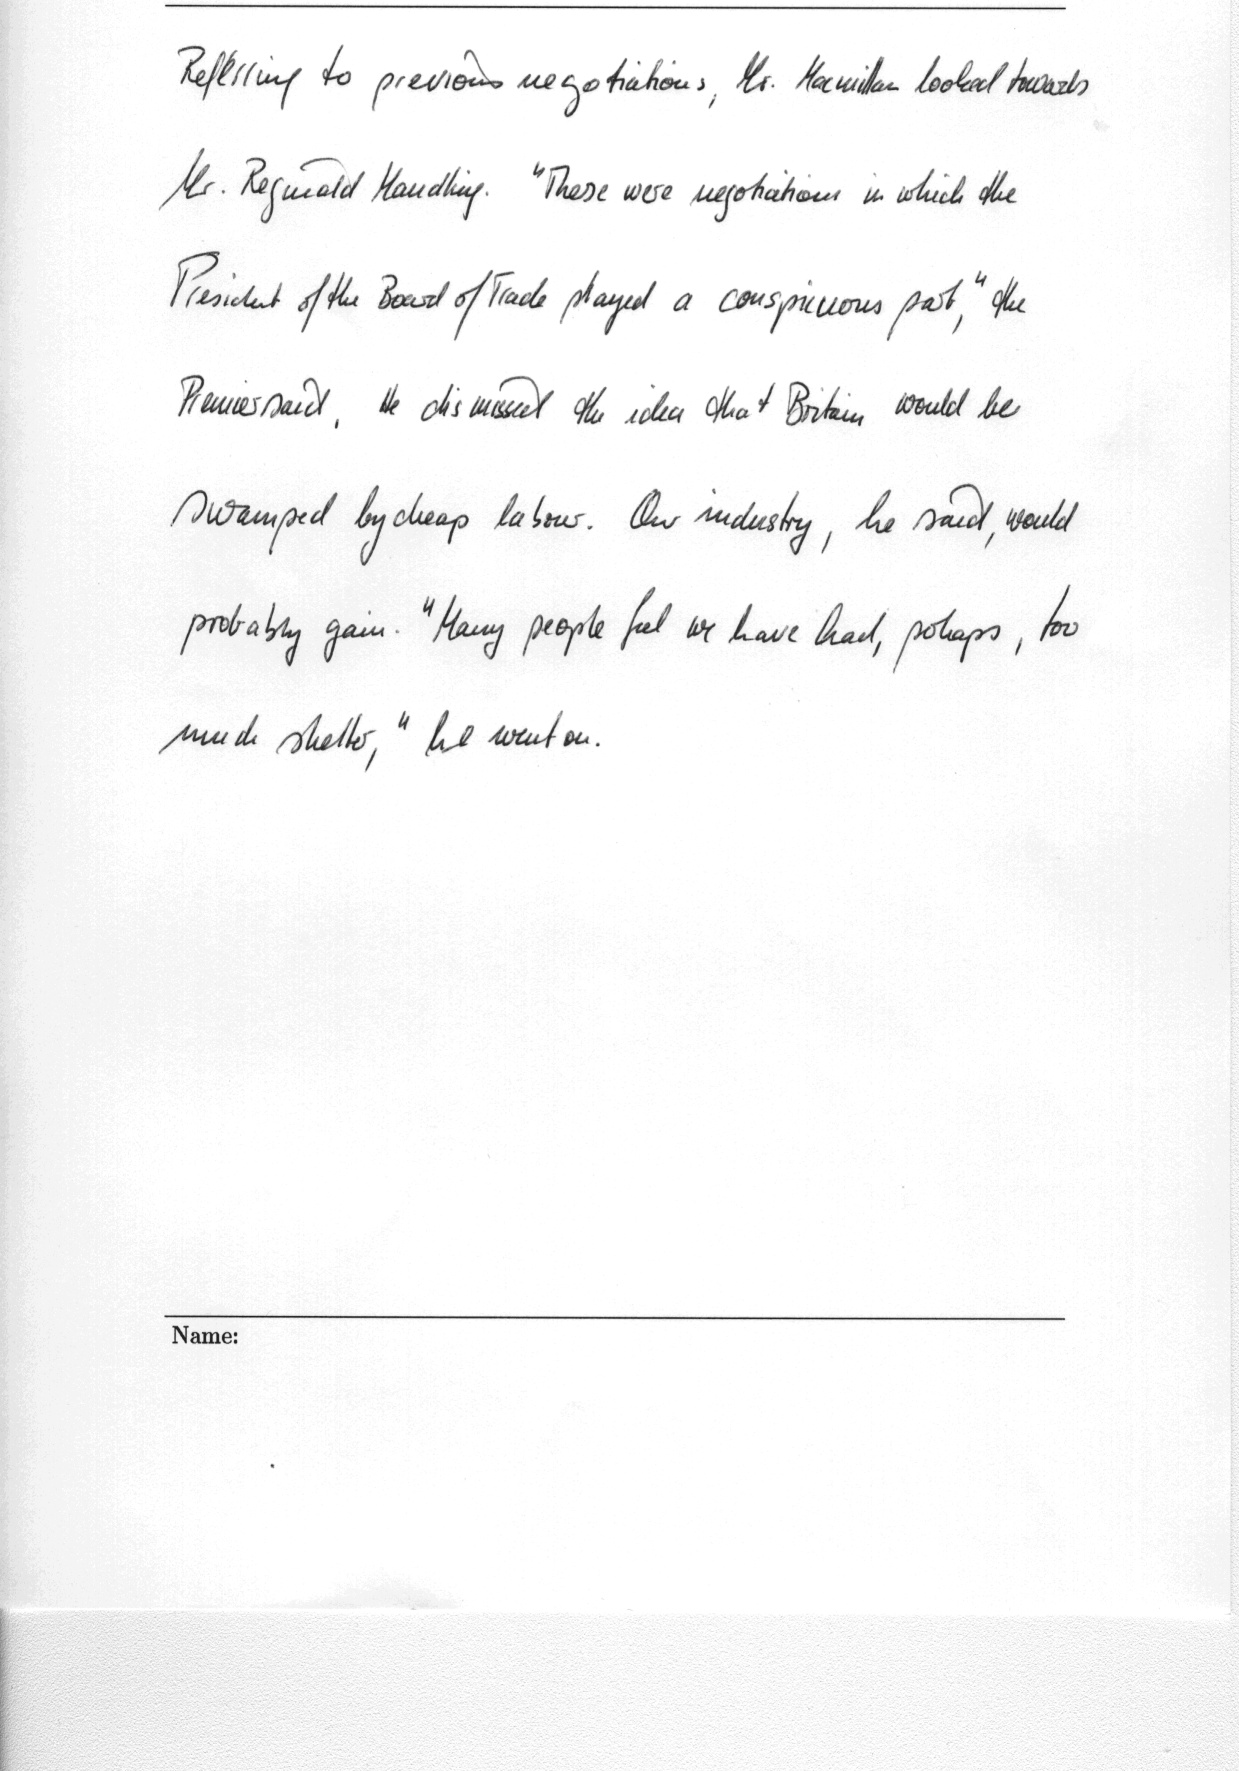 Referring to previous negotiations, Mr. Macmillan looked towards
Mr. Reginald Maudling. "These were negotiations in which the
President of the Board of Trade played a conspicuous part," the
Premier said. He dismissed the idea that Britain would be
swamped by cheap labour. Our industry, he said, would
probably gain. "Many people feel we have had, perhaps, too
much shelter," he went on.
Name: